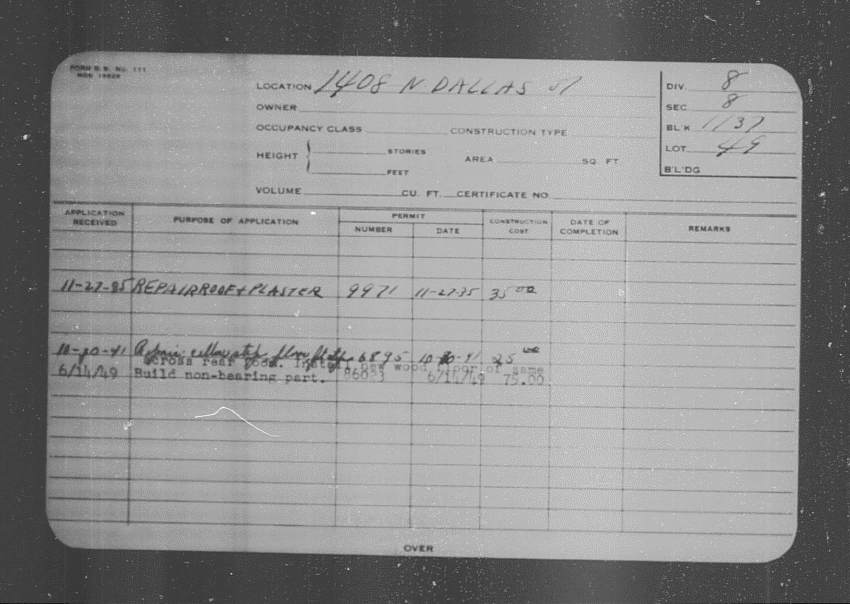 FORM B. B. No. 111
LOCATION 1408 N DALLAS ST
DIV. 8
OWNER
SEC 8
OCCUPANCY CLASS CONSTRUCTION TYPE
BL'K 1137
HEIGHT STORIES
FEET
AREA SQ. FT.
LOT 49
B'L'DG
VOLUME CU. FT. CERTIFICATE NO.
APPLICATION RECEIVED PURPOSE OF APPLICATION PERMIT NUMBER DATE CONSTRUCTION COST DATE OF COMPLETION REMARKS
11-27-35 REPAIR ROOF & PLASTER 9971 11-27-35 35 00
10-20-41 Repair cellar step floor 6895 10-20-41 25 00
across rear room. Install new wood floor of same
6/14/49 Build non-bearing part. 6/14/49 75.00
OVER